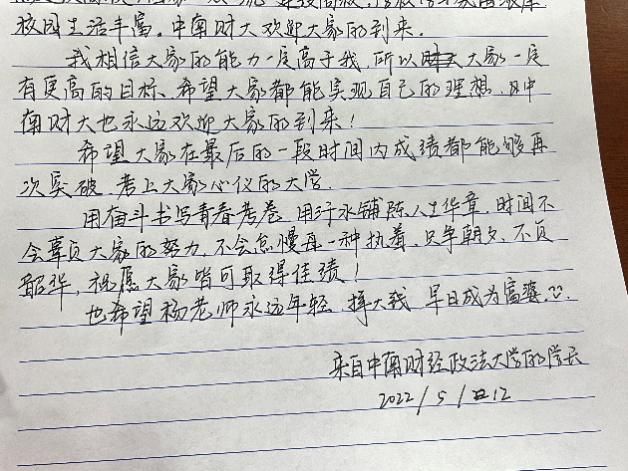 校园生活丰富。中南财大欢迎大家的到来。
我相信大家的能力一定高于我,所以大家一定
有更高的目标、希望大家都能实现自己的理想,
南财大也永远欢迎大家的到来!
希望大家在最后的一段时间内成绩都能够再
次突破,考上大家心仪的大学。
用奋斗书写青春考卷,用汗水铺陈人生华章,时间不
会辜负大家的努力,不会怠慢每一种执着,只争朝夕、不负
韶华,祝愿大家皆可取得佳绩!
也希望杨老师永远年轻,挣大钱,早日成为富婆
来自中南财经政法大学的学长
2022/5/12